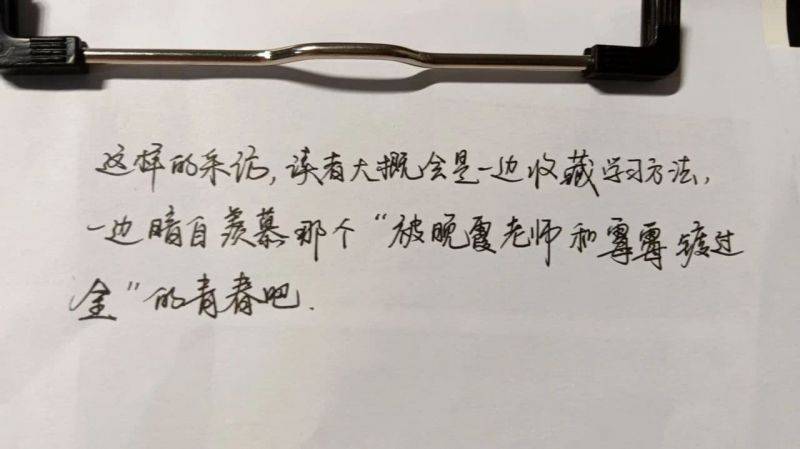 这样的采访,读者大概会是一边收藏学习方法,
一边暗自羡慕那个“被晚霞老师和霉霉镀过
金”的青春吧.